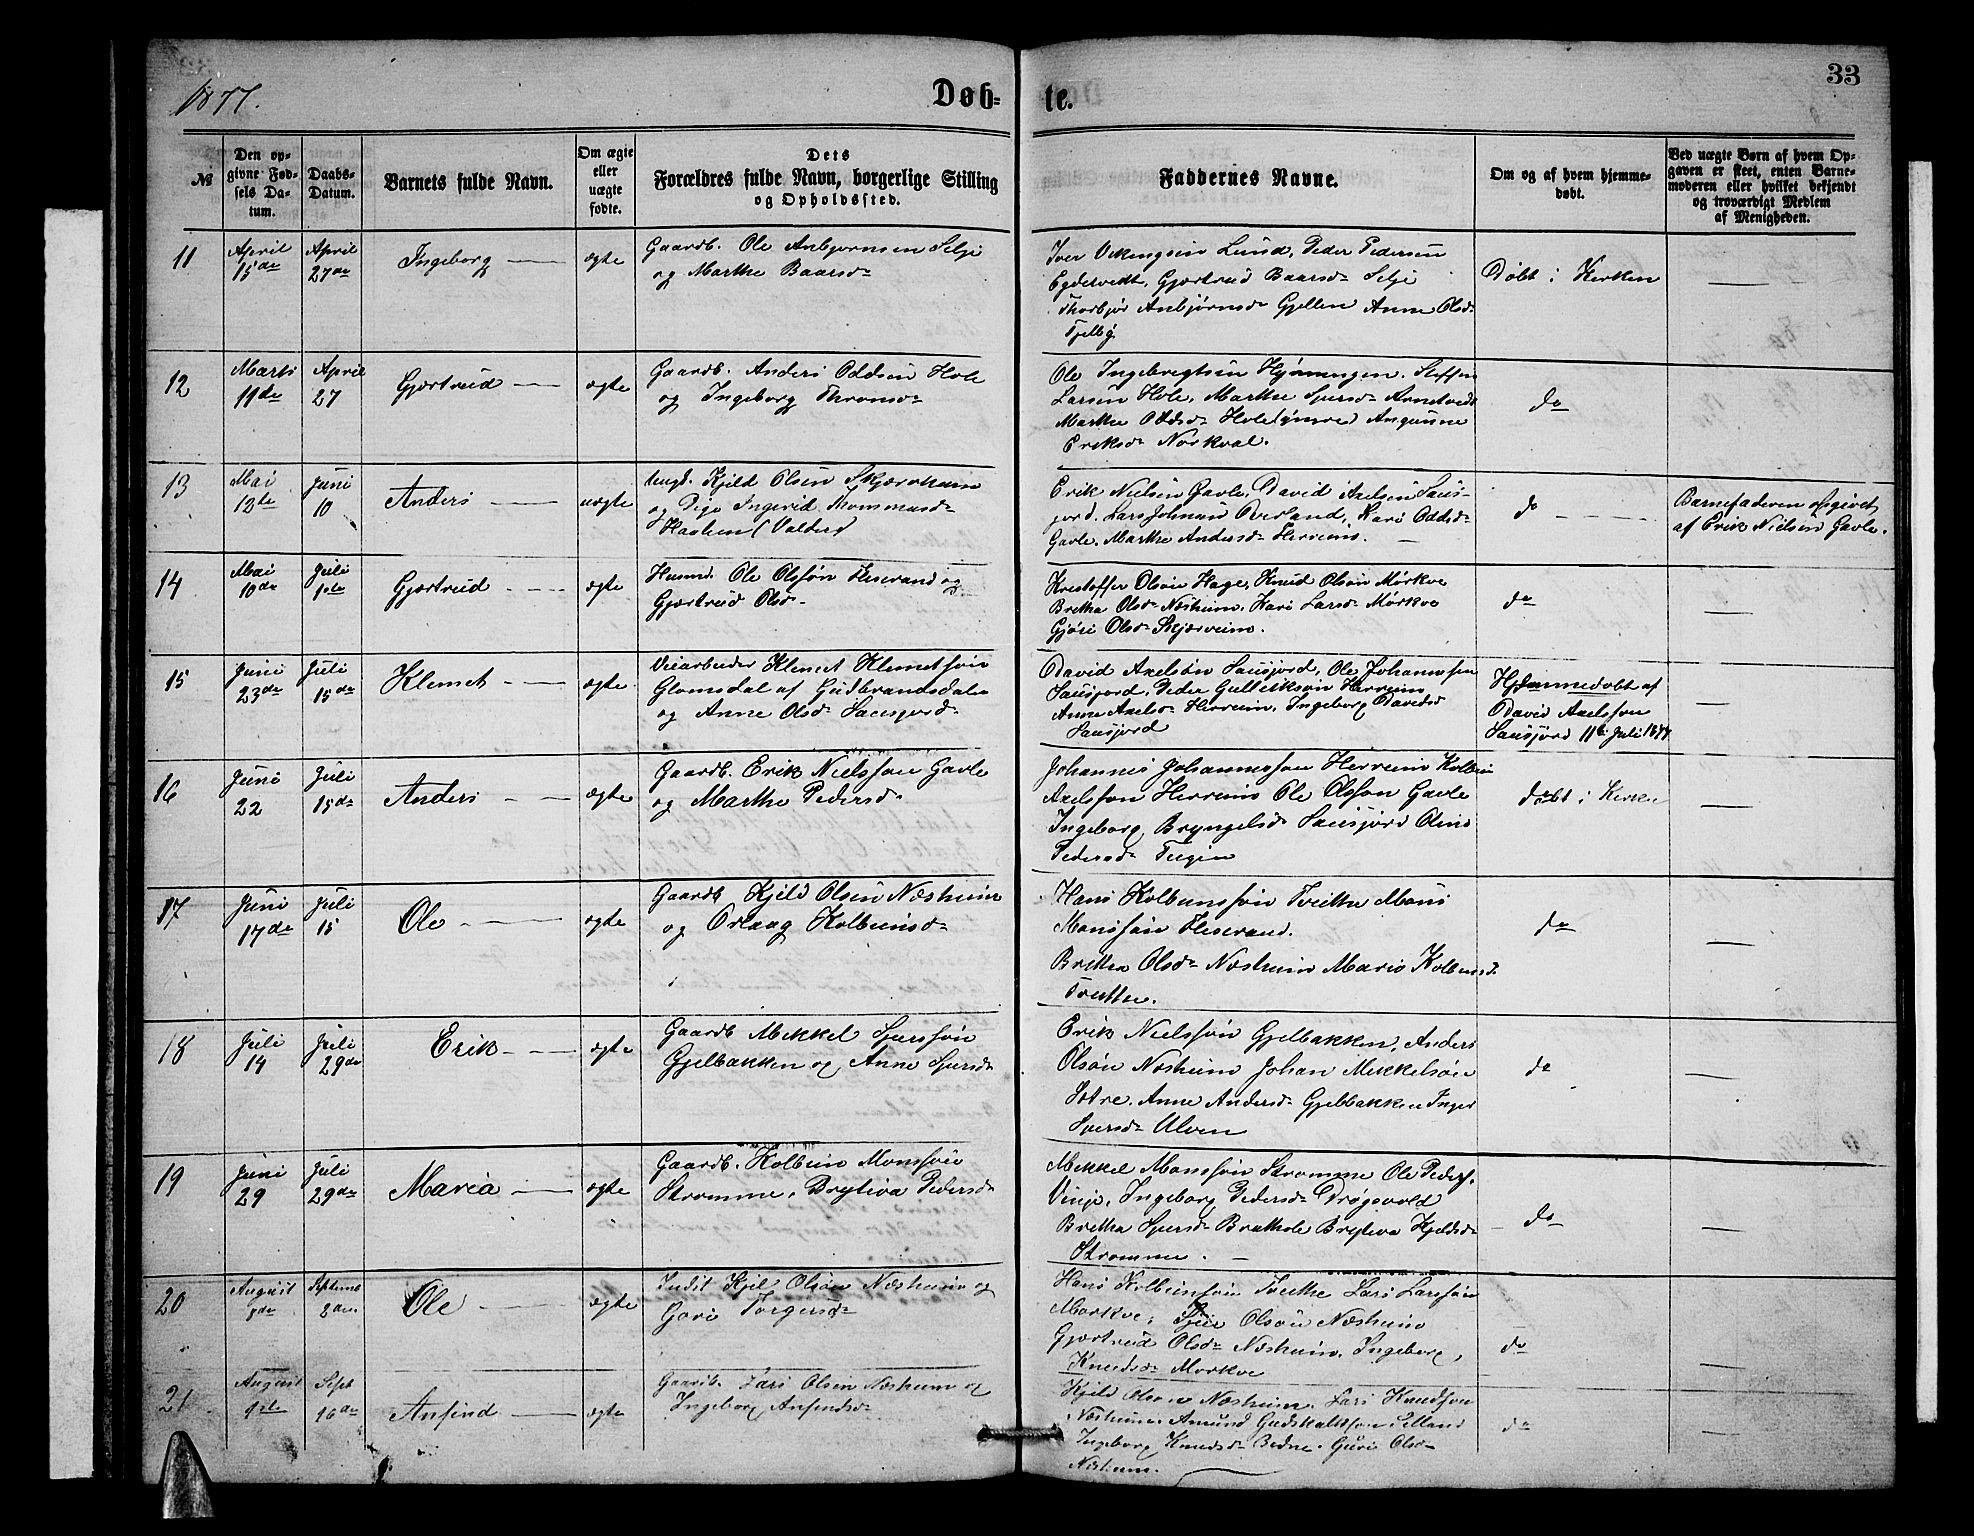 1877.
Døb-
te.
33
№
Den op-
givne Fød-
sels Da-
tum.
Daabs-
Datum.
Barnets fulde Navn.
Om ægte
eller
uægte
fødte.
Dets
Forældres fulde Navn, borgerlige Stilling
og Opholdssted.
Faddernes Navne.
Om og af hvem hjemme-
døbt.
Ved uægte Børn af hvem Op-
gaven er skeet, enten Barne-
moderen eller hvilket bekjendt
og troværdigt Medlem
af Menigheden.
11
April
15de
April
27de
Ingeborg
ægte
Gaardb. Ole Anbjørnsen Selje
og Marthe Baarsd
Iver Vikingsen Lund, Peder Pedersen
Egdetvedt, Gjertrud Baarsd Selje
Thorbjør Anbjørnsd Gjellen Anne Olsd
Døbt i Kirken
12
Marts
11de
April
27
Gjertrud
ægte
Gaardb. Anders Oddsen Hole
og Ingeborg
Ole Ingebregtsen Steffen
Larsen Hole, Marthe Sjursd
Marthe Oddsd Hole
Eriksd
do
13
Mai
Juni
10
Anders
uægte
Ungk. Kjeld Olsen
og Pige Ingerid
Valders
Erik Nielsen Gavle, David Axelsen Saus-
jord, Lars Johnsen Overland, Kari Oddsd
Gavle, Marthe Andersd Herreim.
do
Barnefaderen opgivet
af Erik Nielsen Gavle.
14
Mai
10de
Juli
1ste
Gjertrud
ægte
Husmd. Ole Olssøn og
Gjertrud Olsd
Kristoffer Olsøn Hage, Knud Olsøn Mørkve
Britha Olsd Næsheim, Kari Larsd Mørkve
Olsd Skjerveim.
do
15
Juni
23de
Juli
15de
Klemet
ægte
Veiarbeider Klemet Klemetsøn
Glomsdal af Gudbrandsdalen
og Anne Olsd Sausjord
David Axelsøn Sausjord, Ole Johannssen
Sausjord, Peder Gulleiksøn Herreim
Anne Axelsd Herreim, Ingeborg Davidsd
Sausjord
Hjemmedøbt af
David Axelssøn
Sausjord 11te Juli 1877
16
Juni
22
Juli
15de
Anders
ægte
Gaardb. Erik Nielssøn Gavle
og Marthe Pedersd
Johannes Johannessøn Herreim Kolbein
Axelssøn Herreim Ole Olssøn Gavle
Ingeborg Bryngelsd Sausjord
Pedersd
døbt i Kirken
17
Juni
17de
Juli
15
Ole
ægte
Gaardb Kjeld Olsen Næsheim
og Kolbeinsd
Hans Kolbeinssøn Tveithe Mons
Monssøn
Britha Olsd Næsheim Mario Kolbeinsd
Tveithe.
do
18
Juli
14
Juli
29de
Erik
ægte
Gaardb Mikkel Sjurssøn
Gjelbakken og Anne Sjursd
Erik Nielssøn Gjelbakken, Anders
Olsøn Næsheim Johan Mikkelsøn
Istre, Anne Andersd Gjelbakken Inger
Sjursd Ulven
do
19
Juni
29
Juli
29de
Maria
ægte
Gaardb. Kolbein Monssøn
Strømme, Brytiva Pedersd
Mikkel Monssøn Strømme Ole Peders.
Vinje, Ingeborg Pedersd
Britha Sjursd Brathole Brytiva Kjeldsd
Strømme.
do
20
August
Septemb
Ole
ægte
Indst Kjel Olsøn Næsheim og
Torgersd
Hans Kolbeinssøn Tveithe Lars Larssøn
Mørkve, Olsøn Næsheim
Gjertrud Olsd Næsheim, Ingeborg
Knudsd Mørkve
do
21
August
1ste
Sept
16de
Anfind
ægte
Gaardb. Lars Olsen Næsheim og
Ingeborg Anfindsd
Kjeld Olsen Næsheim, Lars Knudssøn
Næsheim, Amund Gudskalkssøn
Ingeborg Knudsd Guri Olsd
Næsheim.
do